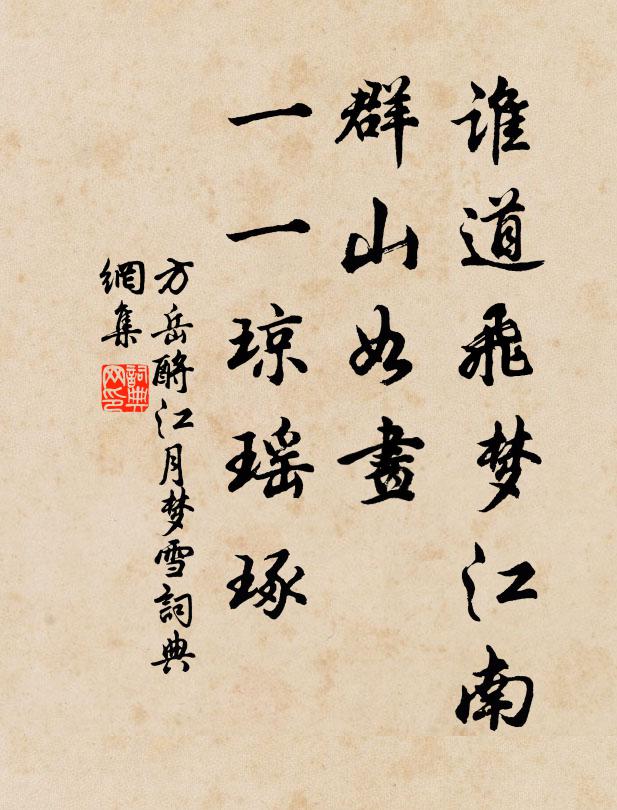 谁道飛梦江南
群山如畫
一一琼瑶琢
方岳酹江月梦雪詞典
網集
詞典
网印